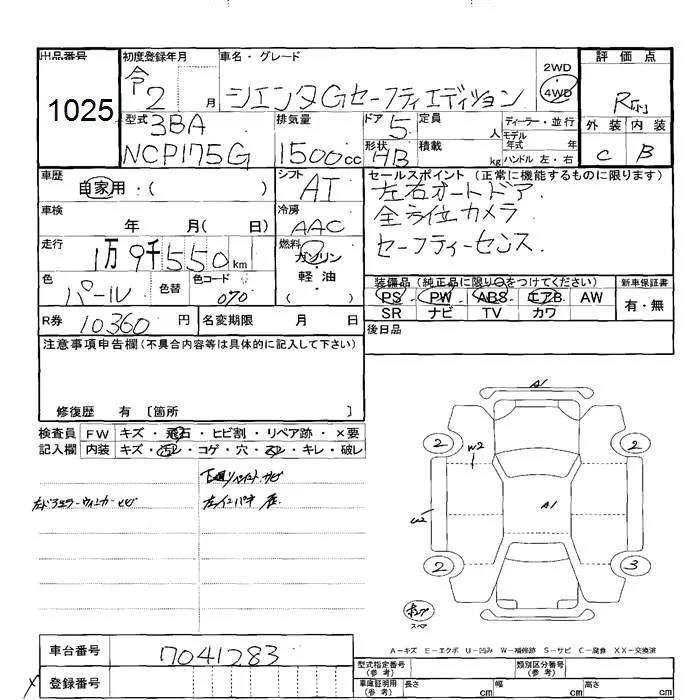 出品番号
1025
初度登録年月
令 2 月
車名・グレード
シエンタGセーフティエディション
2WD
4WD
評価点
R
型式
3BA
NCP175G
排気量
1500cc
ドア
5
定員 人
ディーラー・並行
外装 内装
形状
HB
積載 kg
モデル年式 年
ハンドル 左・右
C B
車歴
自家用・( )
シフト
AT
セールスポイント(正常に機能するものに限ります)
左右オートドア
全方位カメラ
セーフティーセンス
車検
年 月( 日)
冷房
AAC
走行
1万9千550km
燃料
ガソリン
軽・油
( )
色
パール
色替
色コード
070
装備品(純正品に限り○をつけてください)
新車保証書
PS PW ABS エアB AW
SR ナビ TV カワ
有・無
R券
10360円
名変期限 月 日
後日品
注意事項申告欄(不具合内容等は具体的に記入して下さい)
修復歴 有〔箇所 〕
検査員
記入欄
FW キズ・飛石・ヒビ割・リペア跡・×要
内装 キズ・汚レ・コゲ・穴・スレ・キレ・破レ
左ドアミラーウィンカーヒビ
A1
2
2
W2
A1
W2
2
3
スペア
A−キズ E−エクボ U−凹み W−補修跡 S−サビ C−腐食 XX−交換済
車台番号
7041283
登録番号
型式指定番号
(参考)
類別区分番号
(参考)
車庫証明用
(参考)
長さ cm
幅 cm
高さ cm